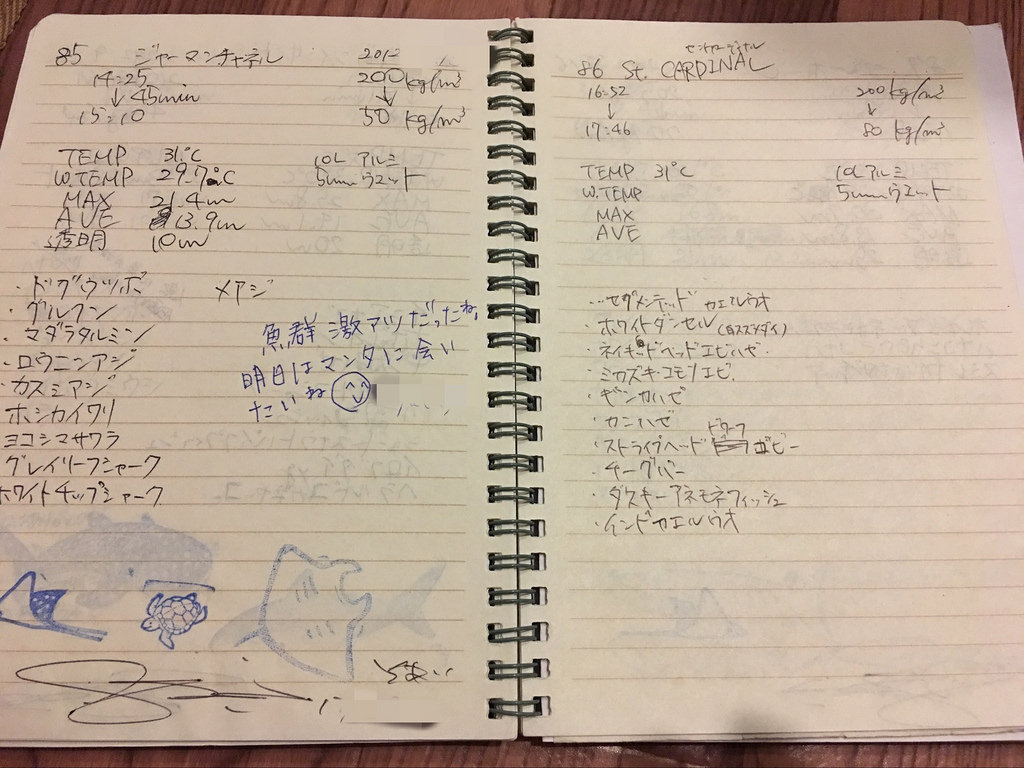 85 ジャーマンチャネル 2012
14:25 200kg/m³
↓ 45min ↓
15:10 50 kg/m³
TEMP 31℃ 10L アルミ
W.TEMP 29.7℃ 5mmウエット
MAX 21.4m
AVE 13.9m
透明 10m
・ドグウツボ メアジ
・グルクン
・マダラタルミ
・ロウニンアジ
・カスミアジ
ホシカイワリ
ヨコシマサワラ
グレイリーフシャーク
ホワイトチップシャーク
魚群 激アツだったね。
明日はマンタに会い
たいね
86 St. CARDINAL
16:52 200kg/m³
↓ ↓
17:46 80 kg/m³
TEMP 31℃ 10Lアルミ
W.TEMP 5mmウエット
MAX
AVE
・セグメンテッド カエルウオ
・ホワイトダンセル
・ネイキッドヘッドエビハゼ
・ミカヅキコモンエビ
・ギンガハゼ
・カニハゼ
・ストライプヘッド ドワーフ ゴビー
・チーグバー
・ダスキーアネモネフィッシュ
・インドカエルウオ